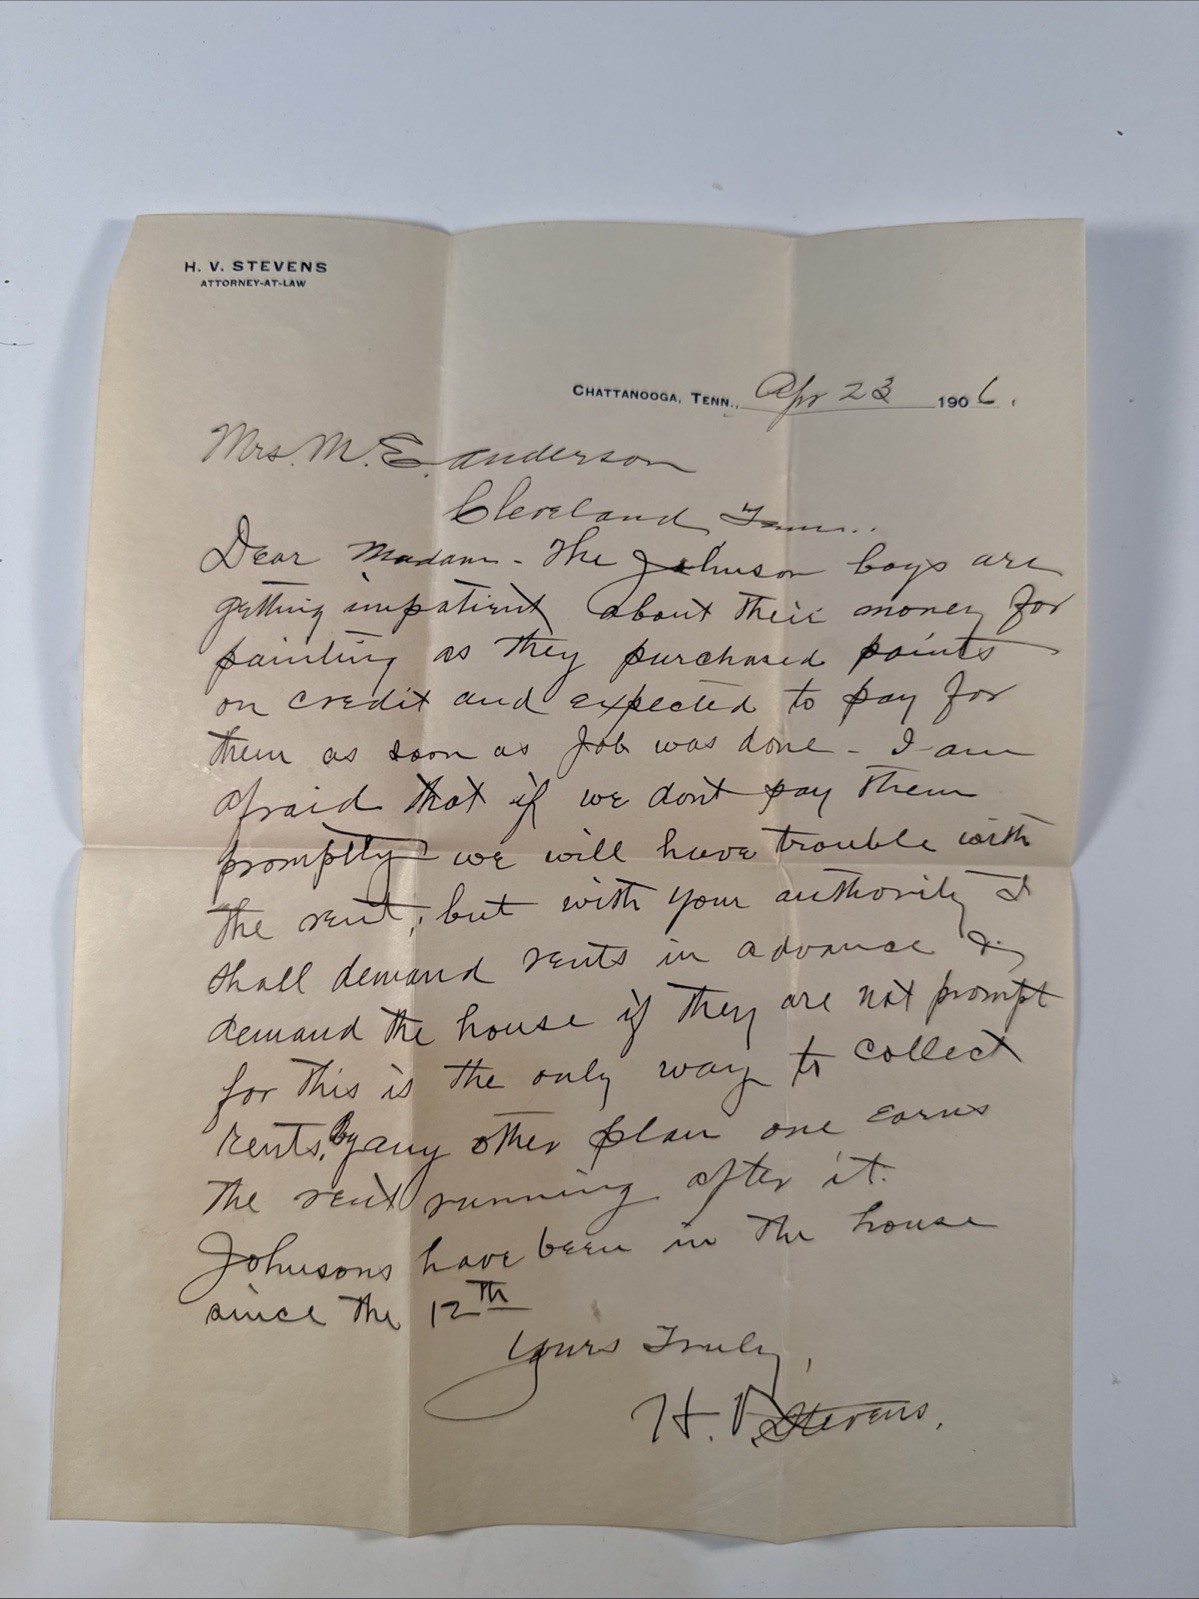 H. V. STEVENS
ATTORNEY-AT-LAW
CHATTANOOGA, TENN., Apr 23 1906.
Mrs. M. E. Anderson
Cleveland, Tenn..
Dear Madam - The Johnson boys are
getting impatient about their money for
painting as they purchased paints
on credit and expected to pay for
them as soon as job was done - I am
afraid that if we dont pay them
promptly we will have trouble with
the rent, but with your authority I
shall demand rents in advance &
demand the house if they are not prompt
for this is the only way to collect
rents, By any other plan one earns
the rent running after it.
Johnsons have been in the house
since the 12th
Yours Truly,
H. V. Stevens.